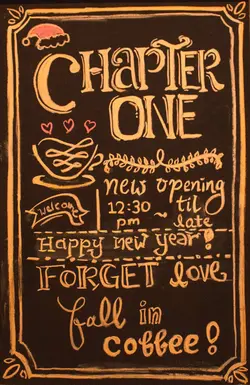 CHAPTER
ONE
new opening
welcome
12:30 ~ 'til
pm late
Happy new year!
FORGET love
fall in
coffee!